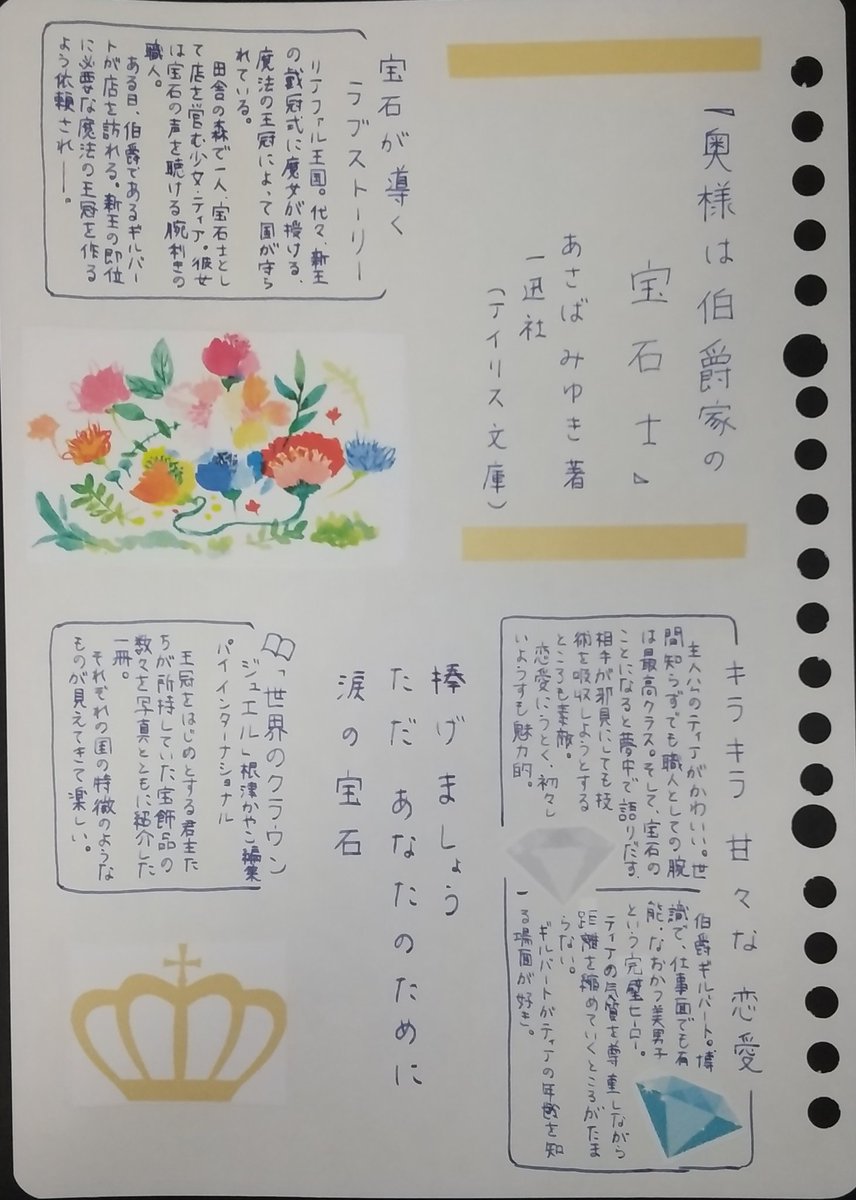 『奥様は伯爵家の
宝石士』
あさばみゆき著
一迅社
(アイリス文庫)
宝石が導く
ラブストーリー
リアファル王国。代々、新王
の戴冠式に魔女が授ける、
魔法の王冠によって国が守ら
れている。
田舎の森で一人、宝石士とし
て店を営む少女・ティア。彼女
は宝石の声を聴ける腕利きの
職人。
ある日、伯爵であるギルバー
トが店を訪れる。新王の即位
に必要な魔法の王冠を作る
よう依頼され――。
キラキラ 甘々な恋愛
主人公のティアがかわいい。世
間知らずでも職人としての腕
は最高クラス。そして、宝石の
ことになると夢中で語りだす。
相手が邪見にしても技
術を吸収しようとする
ところも素敵。
恋愛にうとく、初々し
いようすも魅力的。
伯爵ギルバート。博
識で、仕事面でも有
能。なおかつ美男子
という完璧ヒーロー。
ティアの気質を尊重しながら
距離を縮めていくところがたま
らない。
ギルバートがティアの年齢を知
る場面が好き。
捧げましょう
ただ あなたのために
涙の宝石
「世界のクラウン
ジュエル」根津かやこ編集
パイ インターナショナル
王冠をはじめとする君主た
ちが所持していた宝飾品の
数々を写真とともに紹介した
一冊。
それぞれの国の特徴のような
ものが見えてきて楽しい。